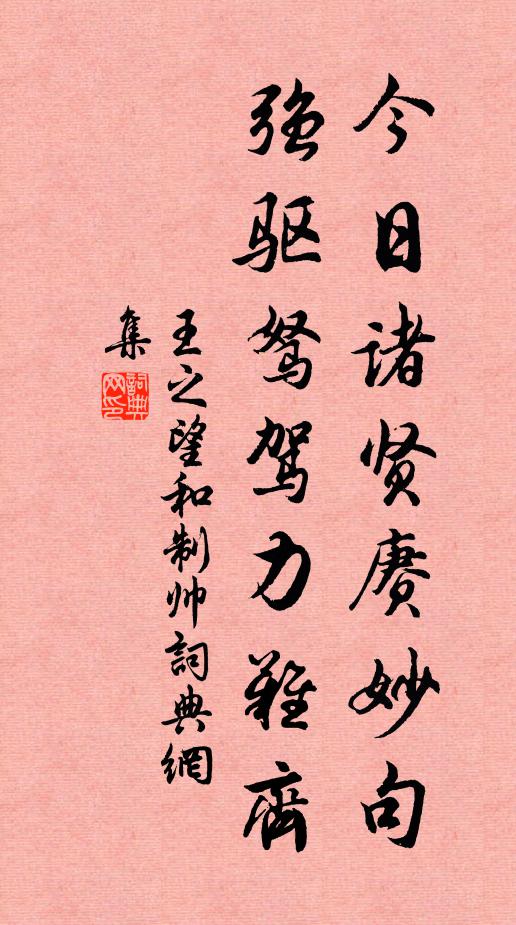 今日诸贤赓妙句
强驱驽驾力难齐
王之望和制帅詞典網
集
詞典网印